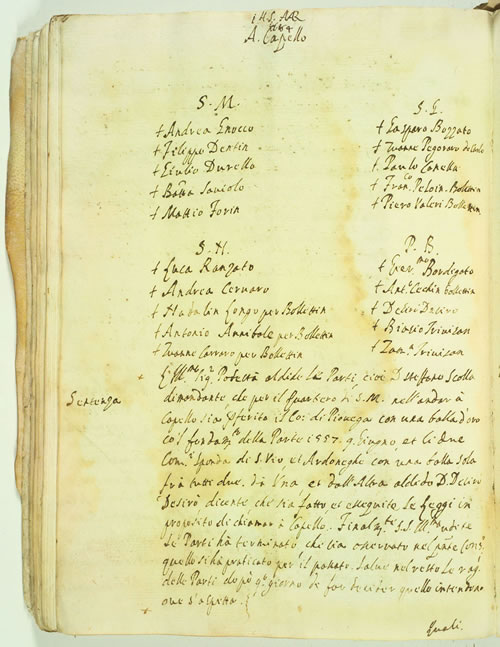 IHS. MR
A. Capello
S. M.
+ Andrea Enocco
+ Filippo Dentin
+ Giulio Durello
+ Batta Saviolo
+ Mattio Forin
S. G.
+ Gasparo Bozzato
+ Zuane Pegoraro
+ Paulo Canella
+ Franco Peloin. Bollettin
+ Piero Valeri Bollettin
S. H.
+ Luca Ranzato
+ Andrea Cervaro
+ Natalin Longo per Bollettin
+ Antonio Annibole per Bollettin
+ Zuane Carraro per Bollettin
P. B.
+ Bordigato
+ Ant. Cechin bollettin
+ Desiro
+ Biasio Trivisan
+ Zama Trivisan
Sentenza
Sigr Podestà aldide le Parti, cioè D. Steffano Scolla
dimandante che per il quartero di S. M. nell'andar à
Capello sia il Co: di Piovega con una balla d'oro
col fondamto della Parte 1557. 9. Giugno, et li due
Comi Sponda di S. Vio, et Ardoneghe con una balla sola
frà tutti due. Da Una, et dall'Altra aldido D. Desiro
Desirò dicente che sia fatto et esseguito le Leggi in
proposito di chiamar à Capello. Finalmte S. S. Illma udite
le Parti hà terminato che sia osservato nel pnte
quello si hà praticato per il passato. Salve nel resto le rag.
delle Parti dopò qto giorno de far decider quello intendono
ove s'aspetta.
Quali.